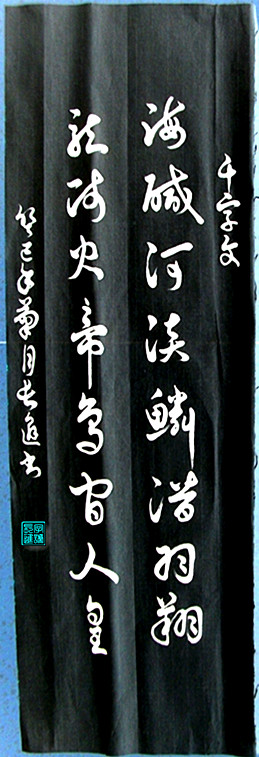 千字文
海鹹河淡鱗潛羽翔
龍師火帝鳥官人皇
癸巳年菊月書